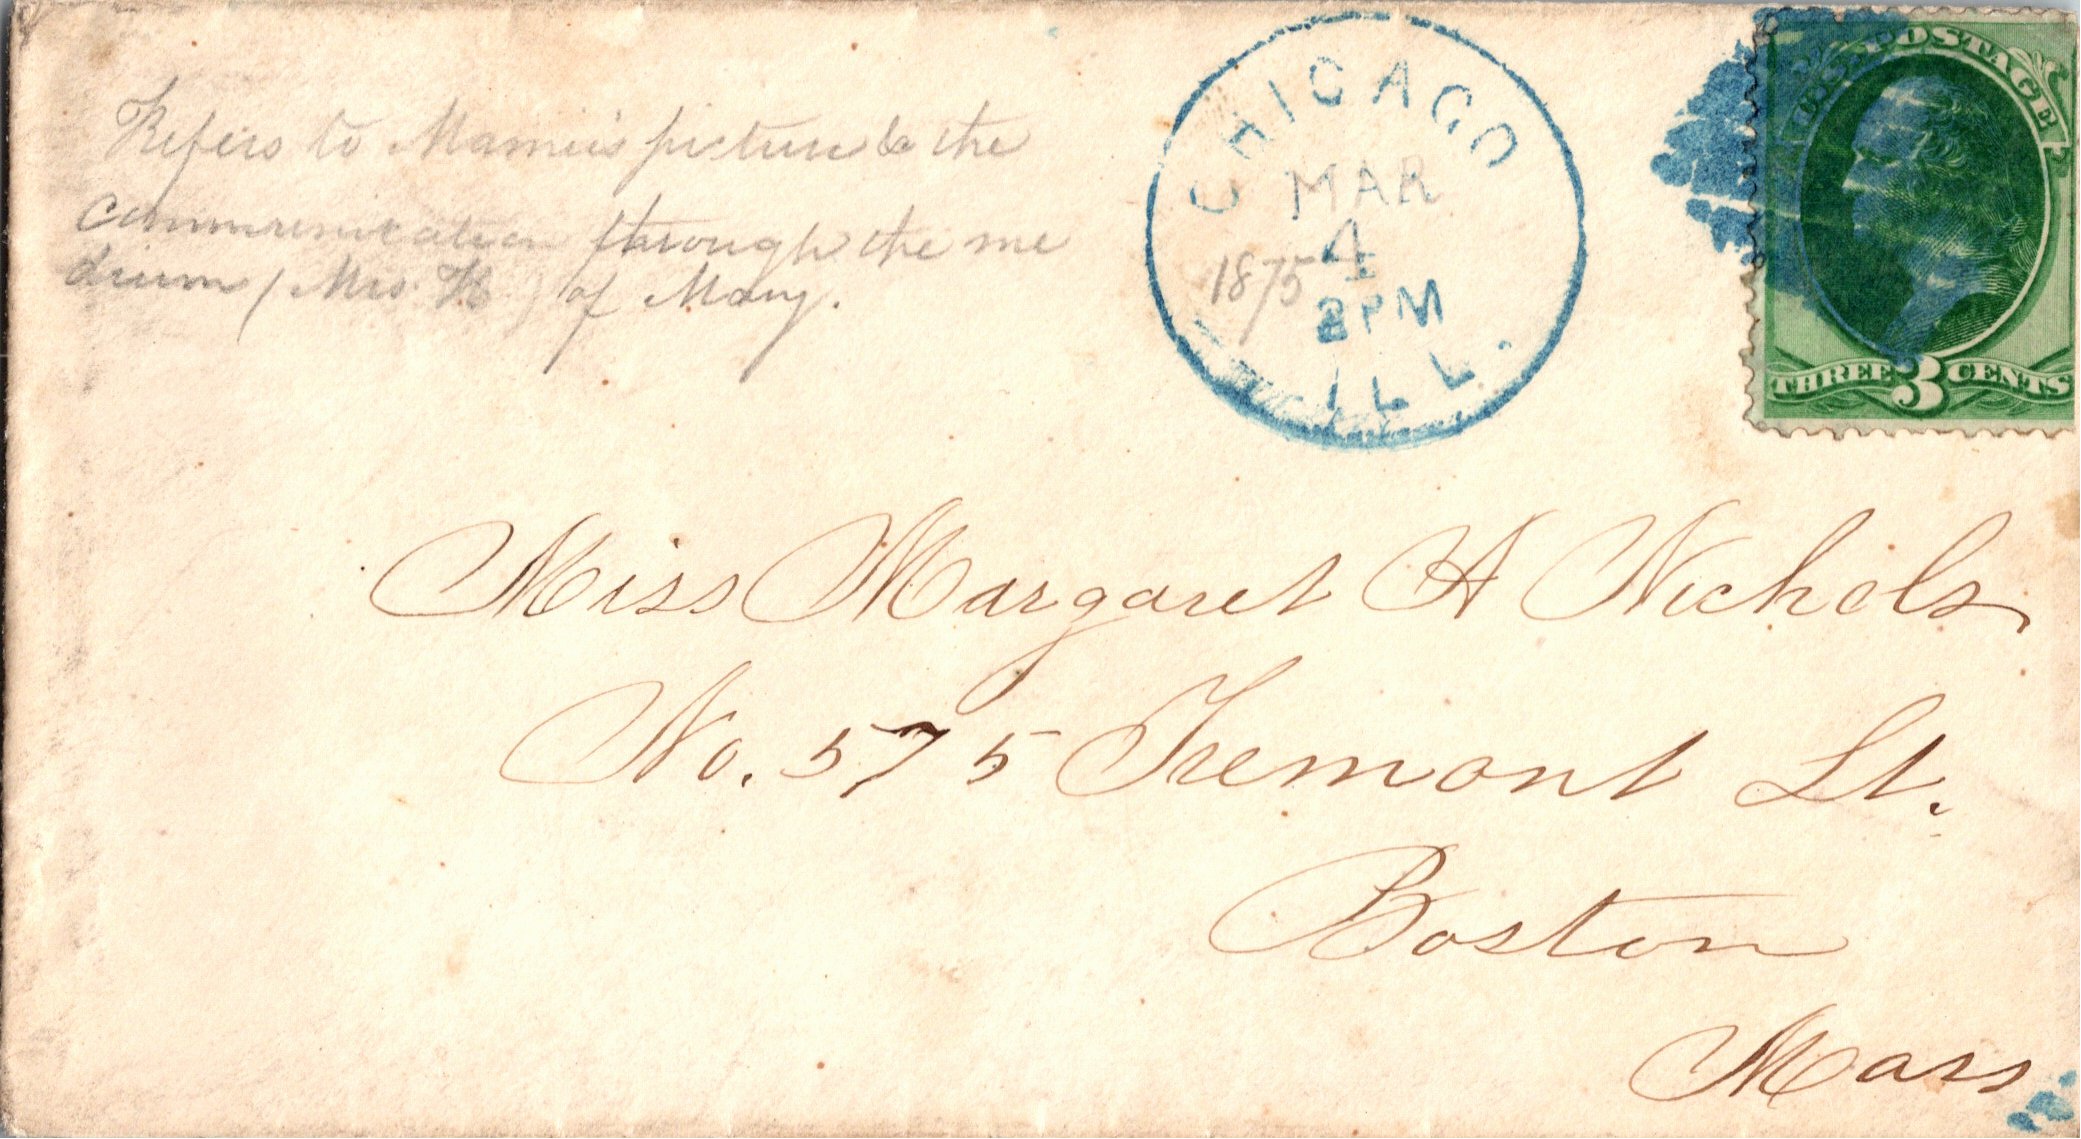 Refers to Mamie's picture & the
communication through the me
dium (Mrs. H) of Mary.
CHICAGO
MAR
4
1875
2 PM
ILL.
U.S. POSTAGE
THREE 3 CENTS
Miss Margaret A Nichols
No. 575 Tremont St.
Boston
Mass